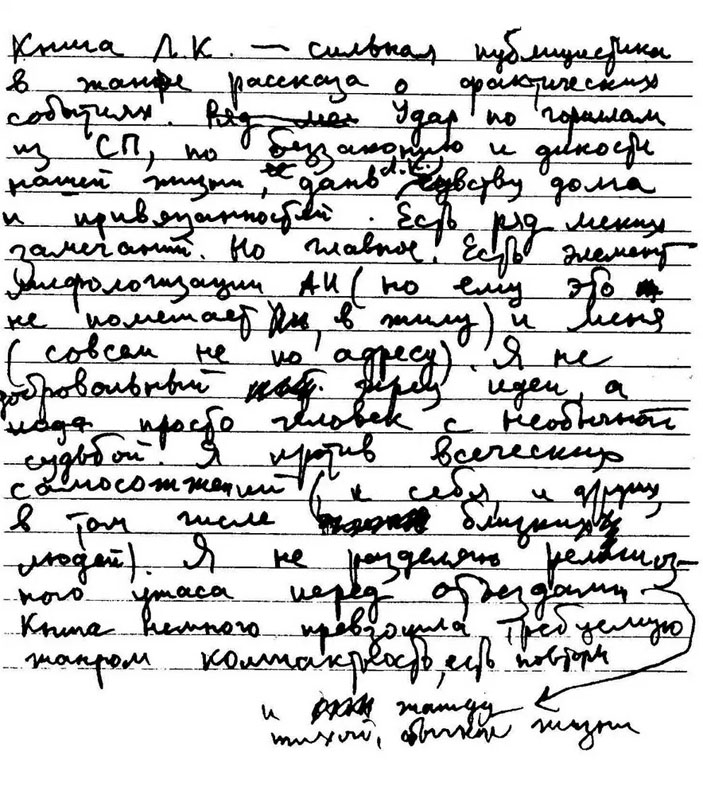 Книга Л.К. — сильная публицистика
в жанре рассказа о фактических
событиях. Ряд мел Удар по гориллам
из СП, по беззаконию и дикости
нашей жизни, дань Л.К. чувству долга
и привязанностей. Есть ряд мелких
замечаний. Но главное. Есть элемент
мифологизации АИ (но ему это
не помешает, в жилу) и меня
(совсем не по адресу). Я не
добровольный жрец идеи, а
просто человек с необычной
судьбой. Я против всяческих
самосожжений (и себя, и других,
в том числе близких
людей). Я не разделяю религиоз-
ного ужаса перед отъездами
Книга немного превзошла требуемую
жанром компактность, есть повторы
и жажду
тихой, обычной жизни